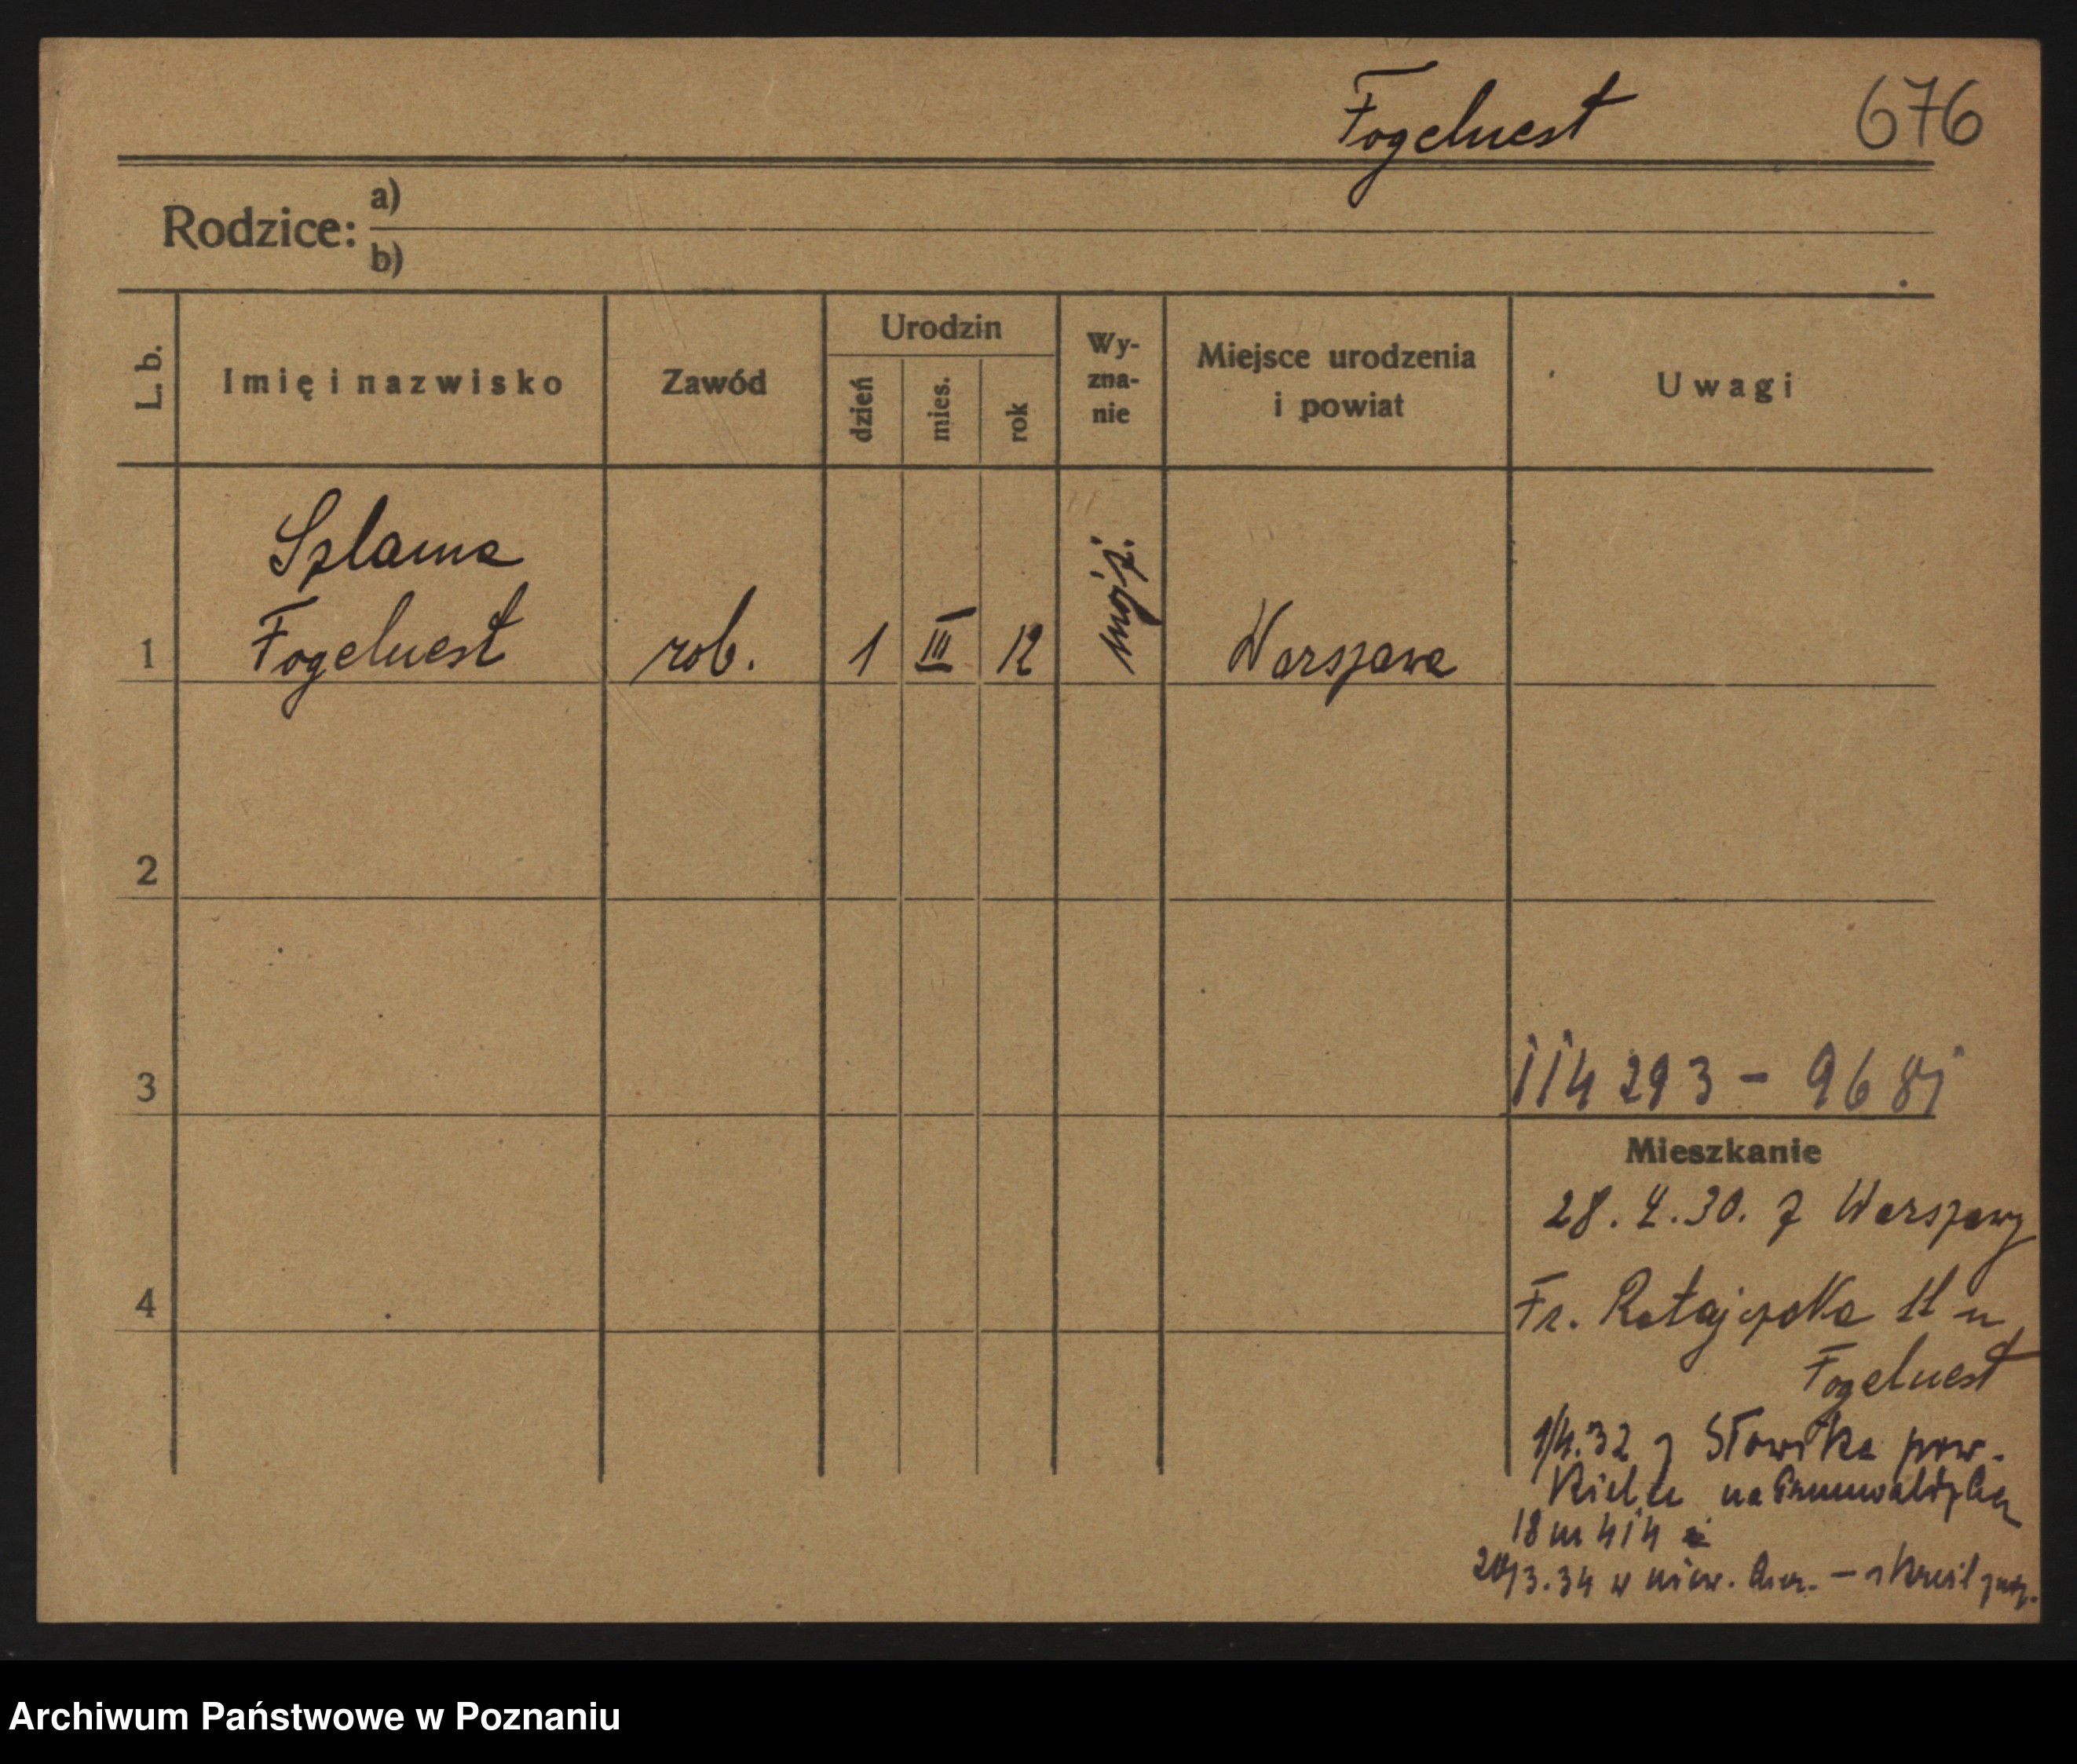 Fogelnest 676
Rodzice: a)
b)
L. b. Imię i nazwisko Zawód Urodzin dzień mies. rok Wy-zna-nie Miejsce urodzenia i powiat Uwagi
Szlama
1 Fogelnest rob. 1 III 12 mojż. Warszawa
2
3
114293 - 9681
Mieszkanie
28. X. 30. z Warszawy
4
Fr. Ratajczaka 11 u
Fogelnest
1/4.32 z Słowika pow.
Kielce na Grunwaldzką
18 m 414
20/3.34 w niew. kier. —
Archiwum Państwowe w Poznaniu